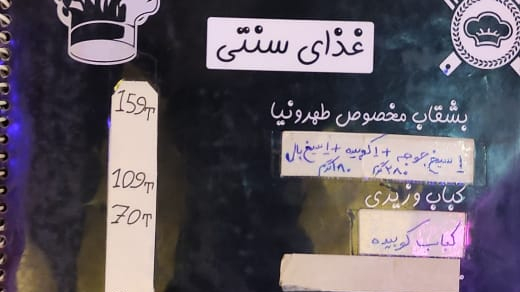 غذای سنتی
بشقاب مخصوص طهرونیا
159T
۱ سیخ جوجه + ۱ کوبیده + ۱ سیخ بال
۲۸۰ گرم ۱۸۰ گرم
کباب وزیری
109T
کباب کوبیده
70T